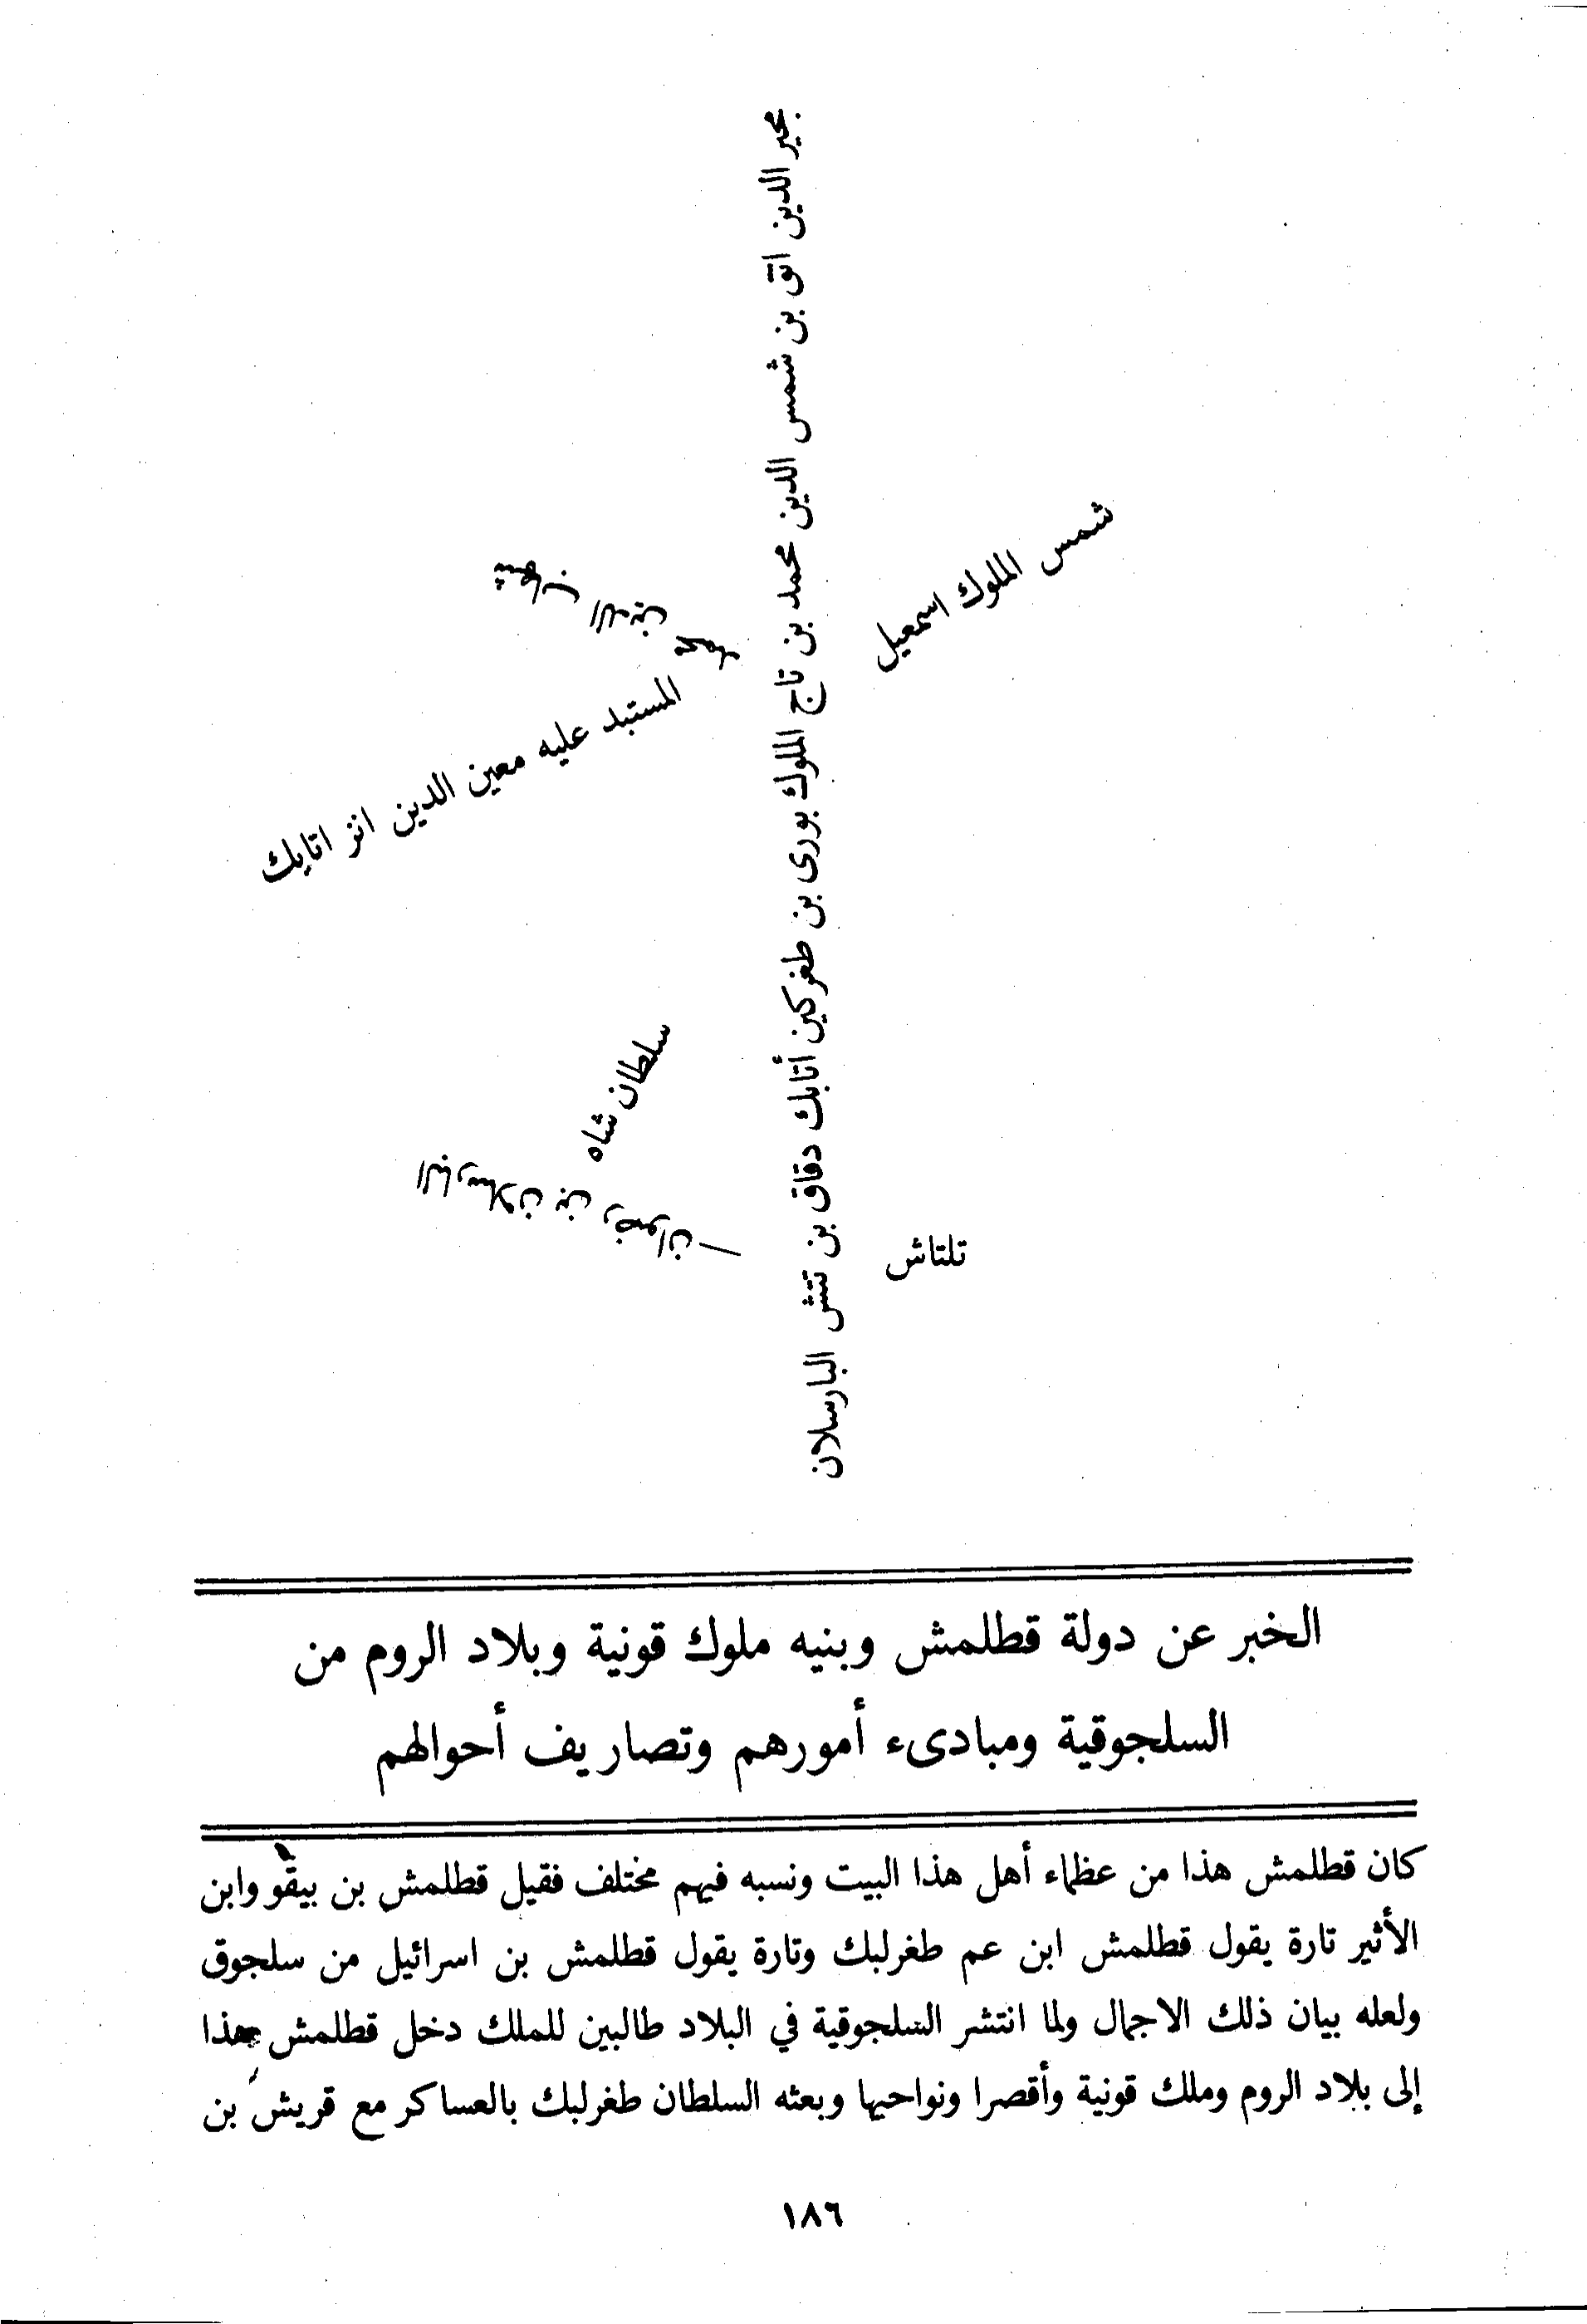 مجير الدين اتق بن شمس الدين محمد بن تاج الملوك بورى بن طغركين أتابك دقاق بن تتش البارسلان
شمس الملوك اسمعيل
شهاب الدين محمود
المستبد عليه معين الدين انز اتابك
سلطان شاه
البارسلان بن رضوان
تلتاش
الخبر عن دولة قطلمش وبنيه ملوك قونية وبلاد الروم من
السلجوقية ومبادىء أمورهم وتصاريف أحوالهم
كان قطلمش هذا من عظماء أهل هذا البيت ونسبه فيهم مختلف فقيل قطلمش بن بيقو وابن
الأثير تارة يقول قطلمش ابن عم طغرلبك وتارة يقول قطلمش بن اسرائيل من سلجوق
ولعله بيان ذلك الاجمال ولما انتشر السلجوقية في البلاد طالبين للملك دخل قطلمش هذا
إلى بلاد الروم وملك قونية وأقصرا ونواحيها وبعثه السلطان طغرلبك بالعساكر مع قريش بن
١٨٦